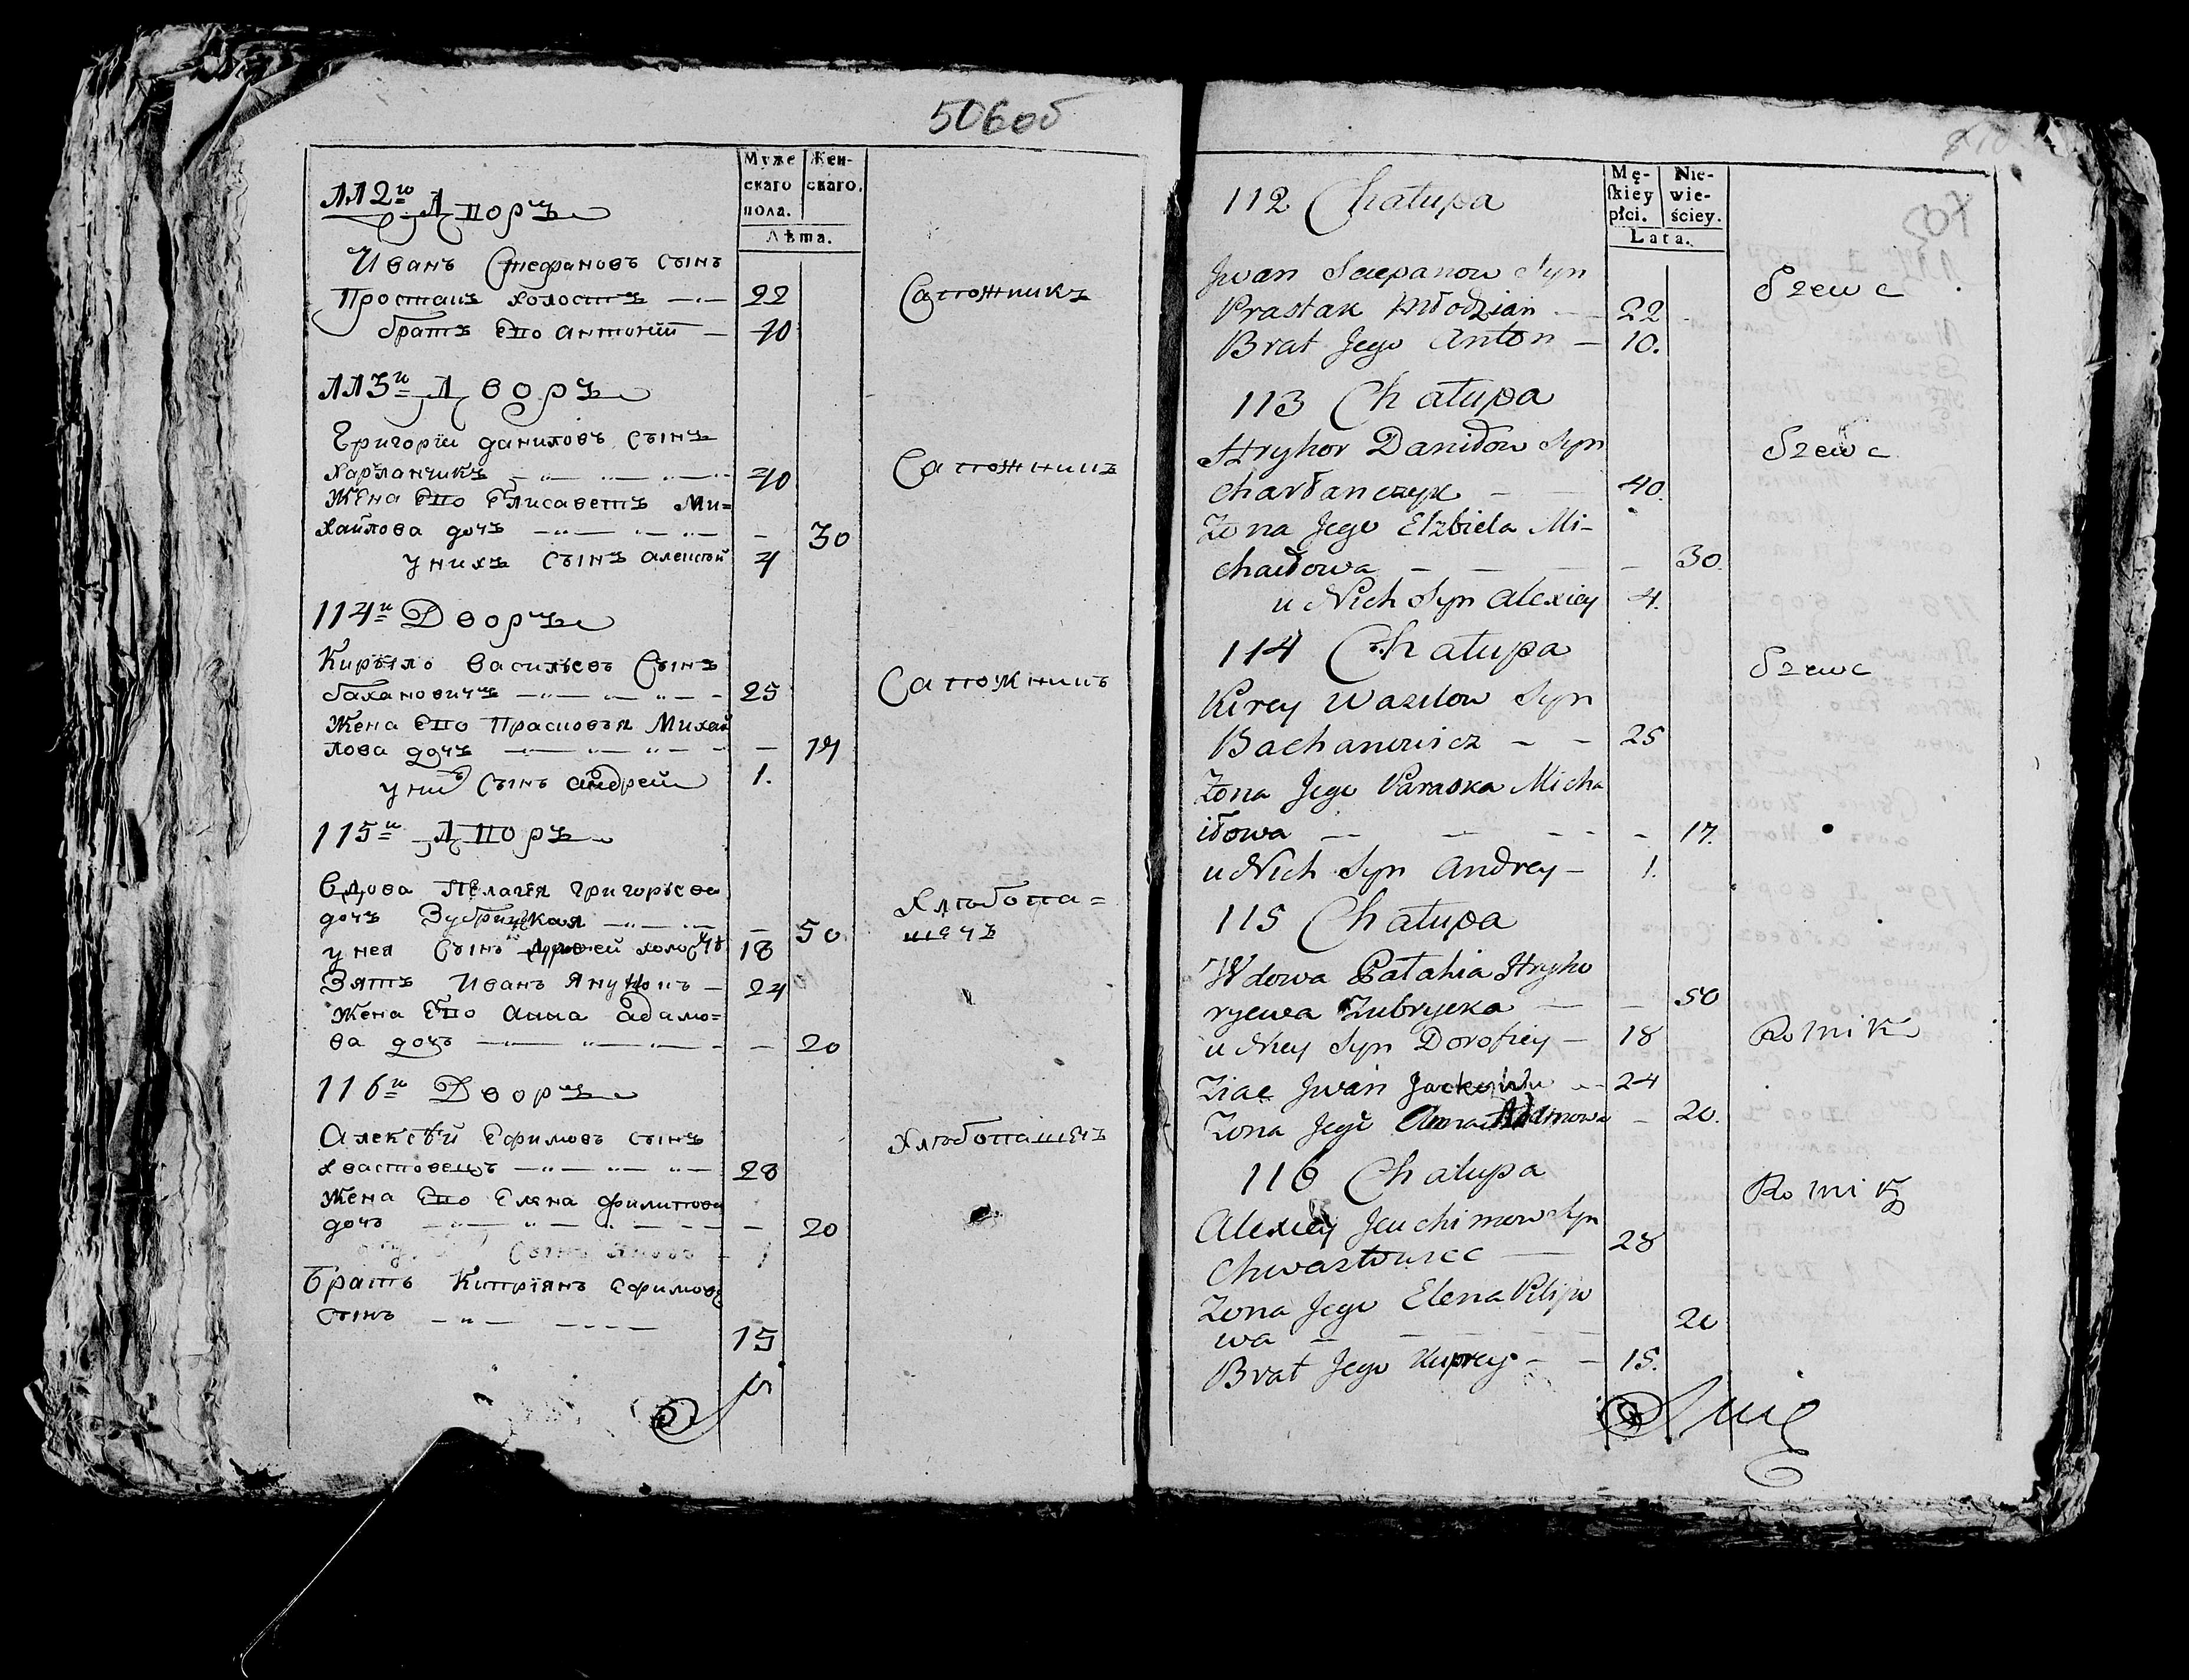 506об
Муже
скаго
пола.
Жен-
скаго.
Лѣта.
112й Дворъ
Иванъ Стефановъ сынъ
Простакъ холостъ 22
Сапожникъ
братъ Его Антоній 10
113й Дворъ
Григорій Даниловъ сынъ
Харланчикъ 40
Сапожникъ
Жена Его Елисаветъ Ми=
хайлова дочь - 30
у нихъ сынъ Алексѣй 4
114й Дворъ
Кирыло Васильевъ Сынъ
Бахановичъ 25
Сапожникъ
Жена Его Прасковья Михай
лова дочь - 17
у них Сынъ Андрей 1.
115й Дворъ
Вдова Пелагея Григорьева
дочь Зубрицкая - 50
Хлѣбопа=
шецъ
у нея Сынъ холостъ 18
Зять Иванъ 24
Жена Его Анна Адамо=
ва дочь - 20
116й Дворъ
Алексѣй Ефимовъ сынъ
Хвастовецъ 28
Хлѣбопашецъ
Жена Его Елена Филипова
дочь - 20
Сынъ Яковъ 1
Братъ Кипріянъ Ефимовъ
сынъ 15
Mę-
skiey
płci.
Nie-
wie-
ściey.
Lata.
112 Chałupa
Jwan Sczepanow Syn
Prastak Młodzian 22
Szewc
Brat Jego Anton 10.
113 Chałupa
Hryhor Daniłow Syn
Charłanczyk 40.
Szewc
Zona Jego Elzbieta Mi-
chaiłowa - 30.
u Nich Syn Alexiey 4.
114 Chałupa
Kirey Wasilow Syn
Bachanowicz 25
Szewc
Zona Jego Paraska Micha
iłowa - 17.
u Nich Syn Andrey 1.
115 Chałupa
Wdowa Pałahia Hryho
ryewa Zubrycka - 50
u Niey Syn Dorofiey 18
Rolnik
Ziac Jwan 24
Zona Jego Anna Adamowa - 20.
116 Chałupa
Alexiey Jeuchimow Syn
Chwastowiec 28
Rolnik
Zona Jego Elena Pilipo
wa 20
Brat Jego Kuprey 15.